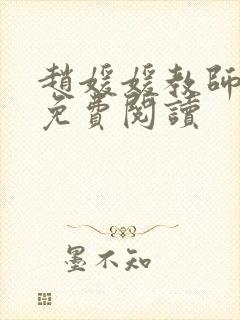 趙媛媛教師
免費閱讀
墨不知